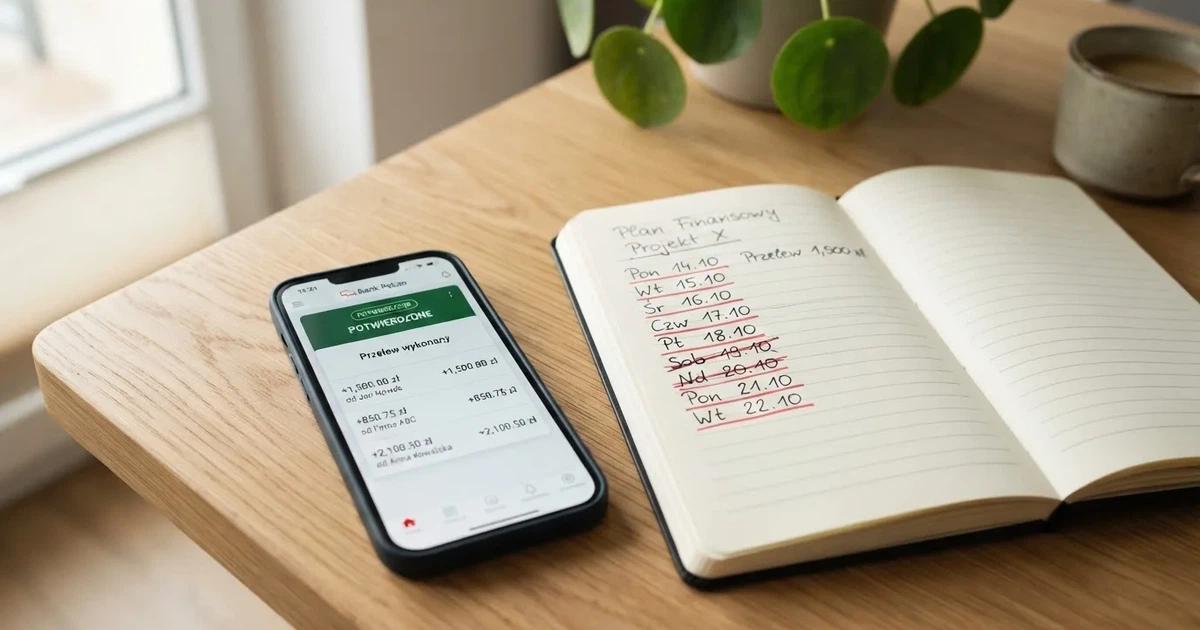 14:21
POTWIERDZONE
Przelew wykonany
+1,500.00 zł
+850.75 zł
+850.75 zł
od Firma ABC
+2,100.50 zł
+2,100.50 zł
od Anna Kowalska
Plan Finansowy
Projekt X
Pon 14.10 Przelew 1,500
Wt 15.10
Śr 16.10
Czw 17.10
Pt 18.10
Sob 19.10
Nd 20.10
Pon 21.10
Wt 22.10